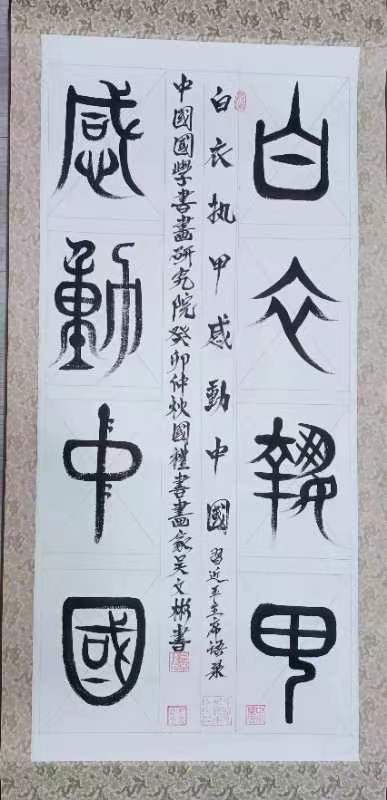 白衣執甲
白衣执甲感動中國 習近平主席語录
中國國學書畫研究院癸卯仲秋國禮書畫家吴文彬書
感動中國